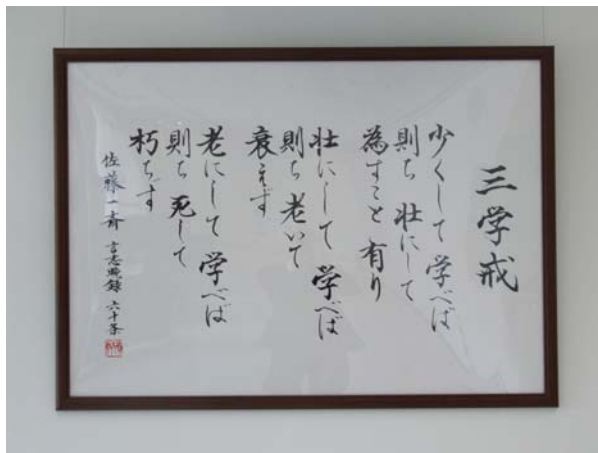 三学戒
少くして 学べば
則ち 壮にして
為すこと 有り
壮にして 学べば
則ち 老いて
衰えず
老にして 学べば
則ち 死して
朽ちず
佐藤一斎 言志晩録 六十条